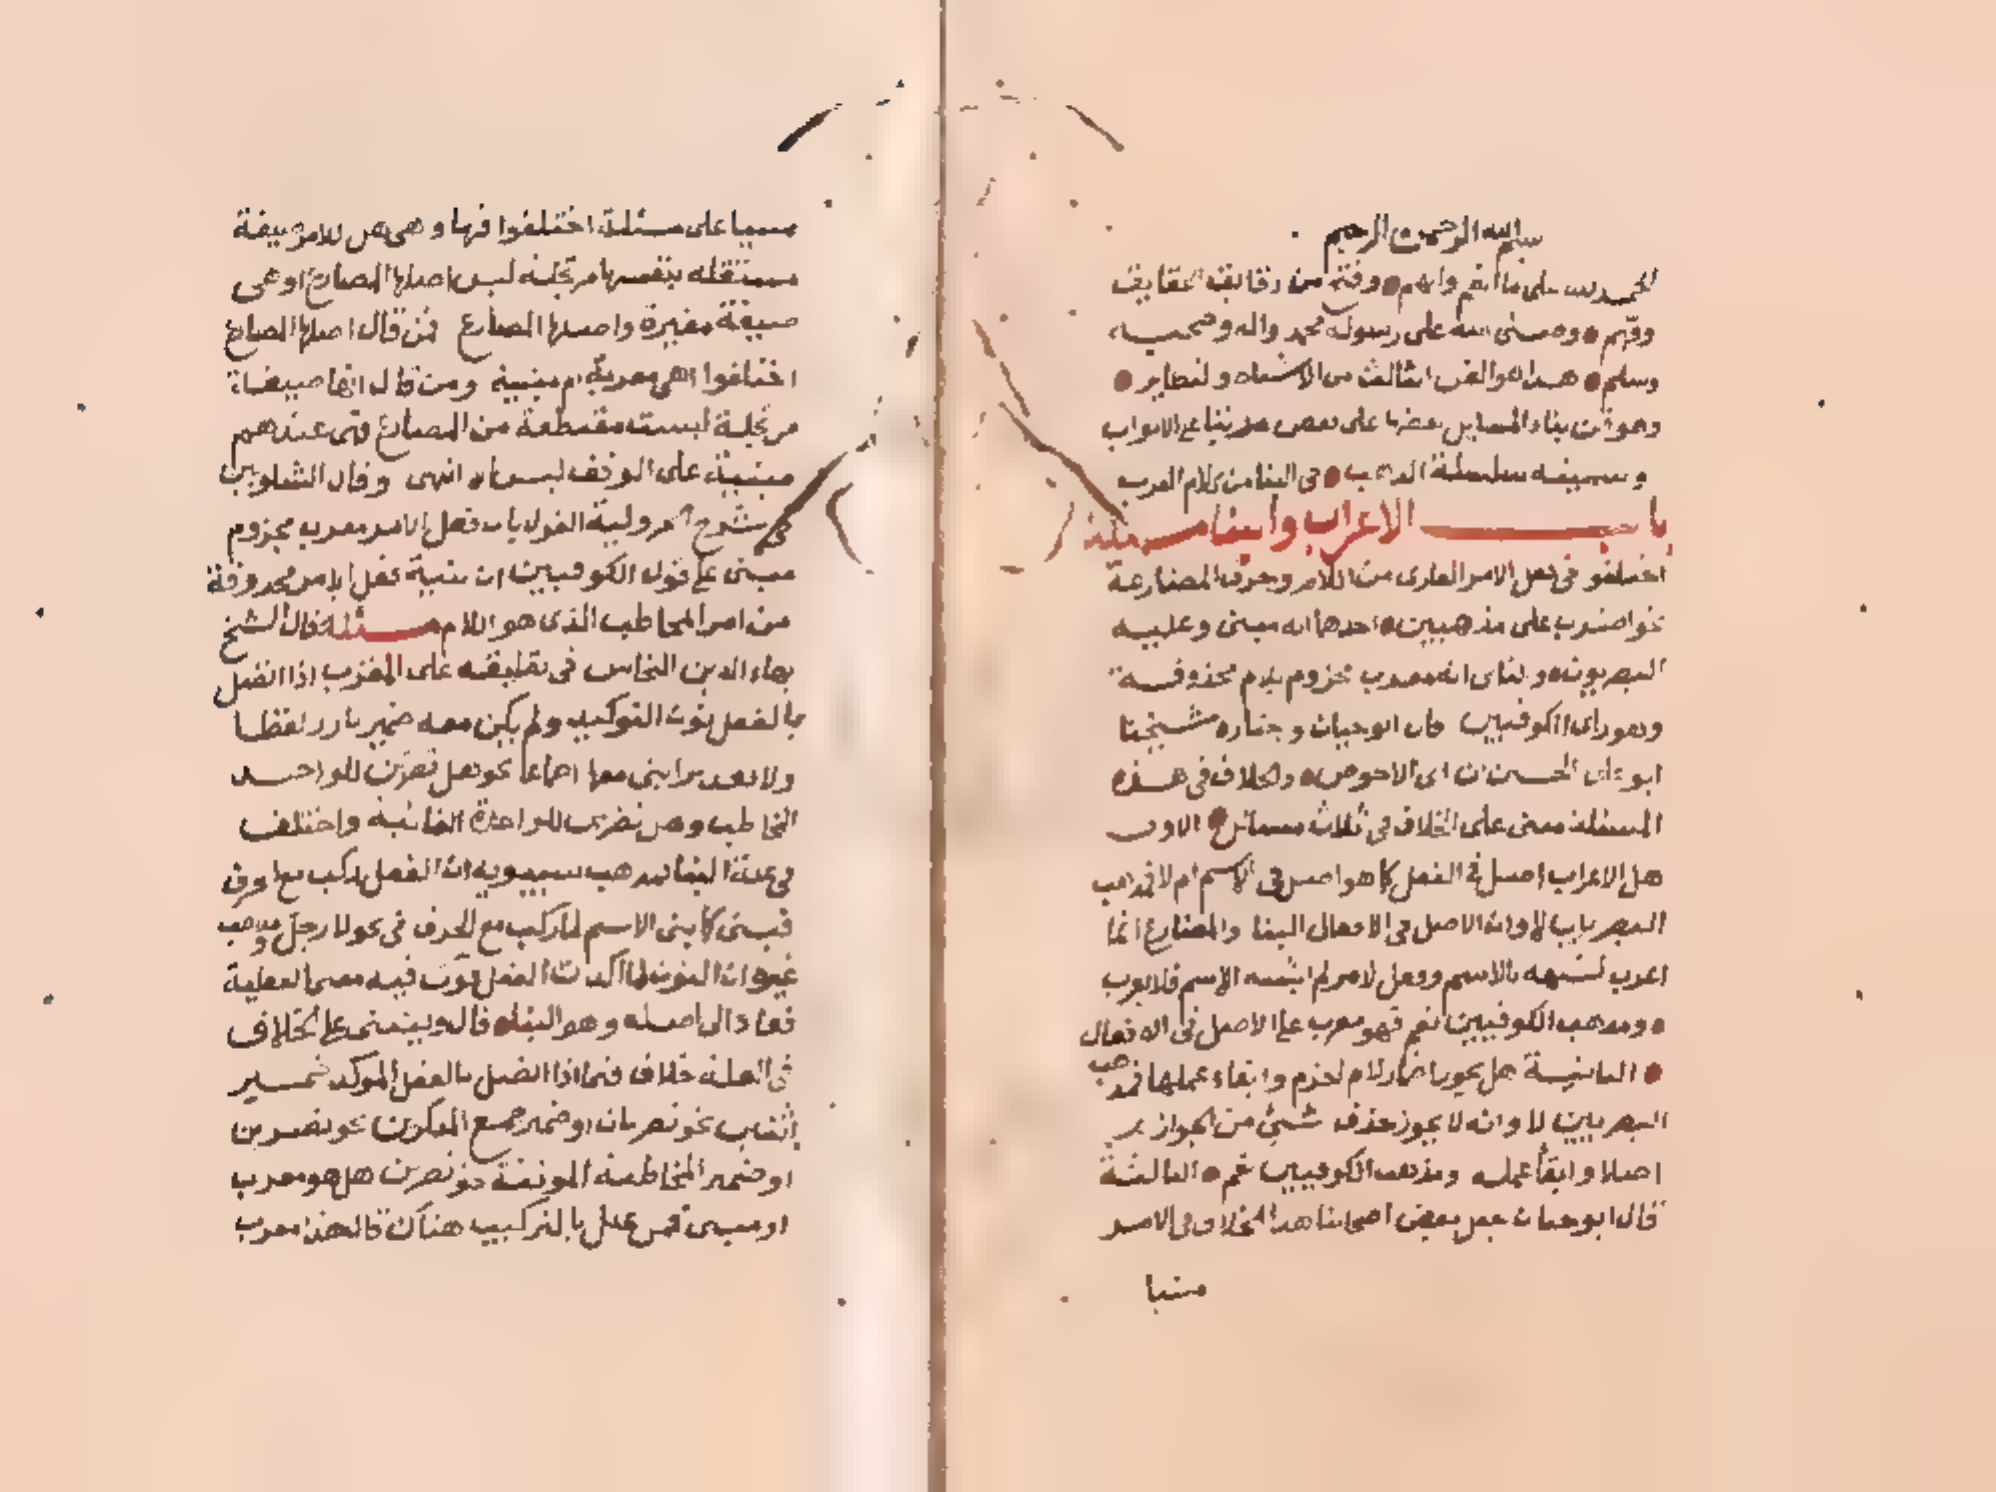 بسم الله الرحمن الرحيم
الحمد لله على ما أنعم وألهم وفتح من دقايق الحقايق
وفهم وصلى الله على رسوله محمد واله وصحبه
وسلم هذا هو الفن الثالث من الاشباه والنظاير
وهو فن بناء المسايل بعضها على بعض مرتبا على الابواب
وسميته سلسلة الذهب في البنا من كلام العرب
باب الاعراب والبنا مسئلة
اختلفوا في فعل الامر العارى من اللام وحرف المضارعة
نحو اضرب على مذهبين احدهما انه مبنى وعليه
البصريون والثانى انه معرب مجزوم بلام محذوفة
وهو راى الكوفيين قال ابو حيان واختاره شيخنا
ابو على الحسن بن ابى الاحوص والخلاف فى هذه
المسئلة مبنى على الخلاف في ثلاث مسائل الاولى
هل الاعراب اصل في الفعل كما هو اصل في الاسم ام لا فمذهب
البصريين لا وان الاصل في الافعال البنا والمضارع انما
اعرب لشبهه بالاسم وفعل لامر لم يشبه الاسم فلا يعرب
ومذهب الكوفيين نعم فهو معرب على الاصل في الافعال
الثانية هل يجوز اضمار لام الجزم وابقاء عملها فمذهب
البصريين لا وانه لا يجوز حذف شئ من الجوازم
اصلا وابقأ عمله ومذهب الكوفيين نعم الثالثة
قال ابو حيان جعل بعض اصحابنا هذا الخلاف في الامر
مبنيا
مبنيا على مسئلة اختلفوا فيها وهى هل للامر صيغة
مستقلة بنفسها مرتجلة ليس اصلها المضارع او هى
صيغة مغيرة واصلها المضارع فمن قال اصلها المضارع
اختلفوا اهى معربة ام مبنية ومن قال انها صيغة
مرتجلة ليست مقتطعة من المضارع فهى عندهم
مبنية على الوقف ليس الا انتهى وقال الشلوبين
فى شرح الجزولية القول بان فعل الامر معرب مجزوم
مبنى على قول الكوفيين ان بنية فعل الامر محذوفة
من امر المخاطب الذى هو اللام مسئلة قال الشيخ
بهاء الدين النحاس فى تعليقه على المقرب اذا اتصل
بالفعل نون التوكيد ولم يكن معه ضمير بارز لفظا
ولا تقديرا بنى معها اجماعا نحو هل تضربن للواحد
المخاطب وهل تضربن للواحدة الغائبة واختلف
فى علة البنا فمذهب سيبويه ان الفعل ركب مع الحرف
فبنى كما بنى الاسم لما ركب مع الحرف فى نحو لا رجل ومذهب
غيره ان النون لما اكدت الفعل قوت فيه معنى الفعلية
فعاد الى اصله وهو البناء قال وينبنى على الخلاف
فى العلة خلاف فيما اذا اتصل بالفعل الموكد ضمير
اثنين نحو تضربان او ضمير جمع المذكرين نحو تضربن
او ضمير المخاطبة المونثة نحو تضربن هل هو معرب
او مبنى فمن علل بالتركيب هناك قال هذا معرب